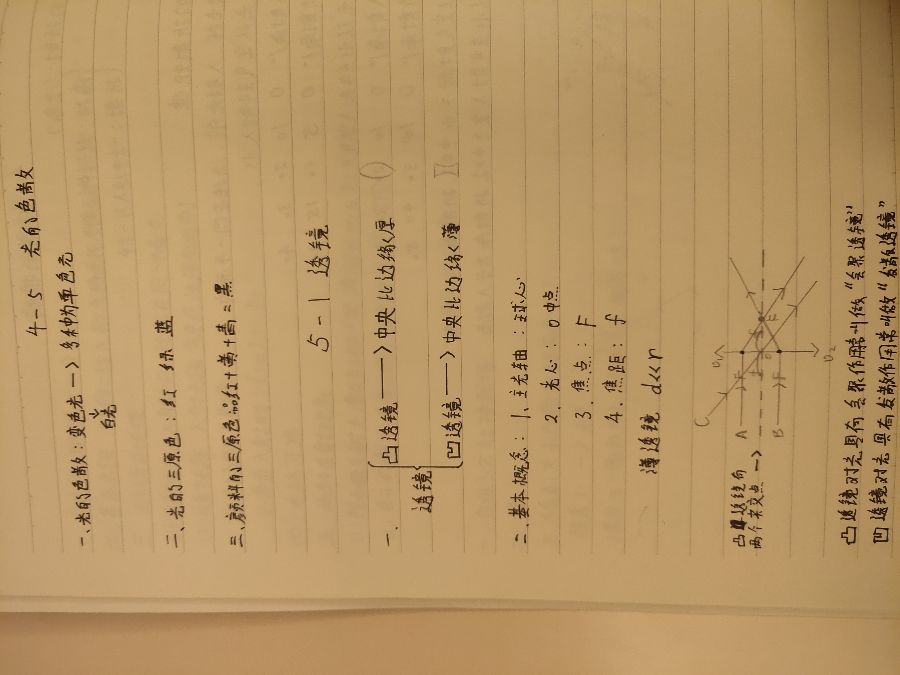 4-5 光的色散
一、光的色散:变色光—>多种为单色光
白光
二、光的三原色:红 绿 蓝
三、颜料的三原色:品红+黄+青=黑
5-1 透镜
一、
透镜
凸透镜——>中央比边缘厚 ()
凹透镜——>中央比边缘薄 )(
二、基本概念:1、主光轴:主球心
2、光心:O中点
3、焦点:F
4、焦距:f
薄透镜 d<<r
凸透镜有
两个焦交点 -->
C
A
B
F
F
凸透镜对光具有会聚作用常叫做“会聚透镜”
凹透镜对光具有发散作用常叫做“发散透镜”